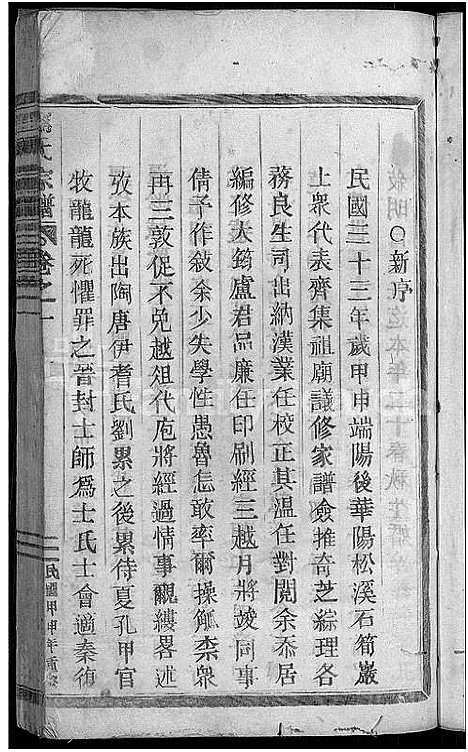 ○新序
民國三十三年歲甲申端陽後華陽松溪石筍巖
上衆代表齊集祖廟議修家譜僉推奇芝綜理各
務良生司出納漢業任校正其溫任對閱余忝居
編修大鈞盧君品廉任印刷經三越月將竣同事
倩予作敘余少失學性愚魯怎敢率爾操觚柰衆
再三敦促不免越俎代庖將經過情事覼縷畧述
攷本族出陶唐伊耆氏劉累之後累侍夏孔甲官
牧龍龍死懼罪之晉封士師爲士氏士會適秦復
氏宗譜
卷之一
民國甲申年重修